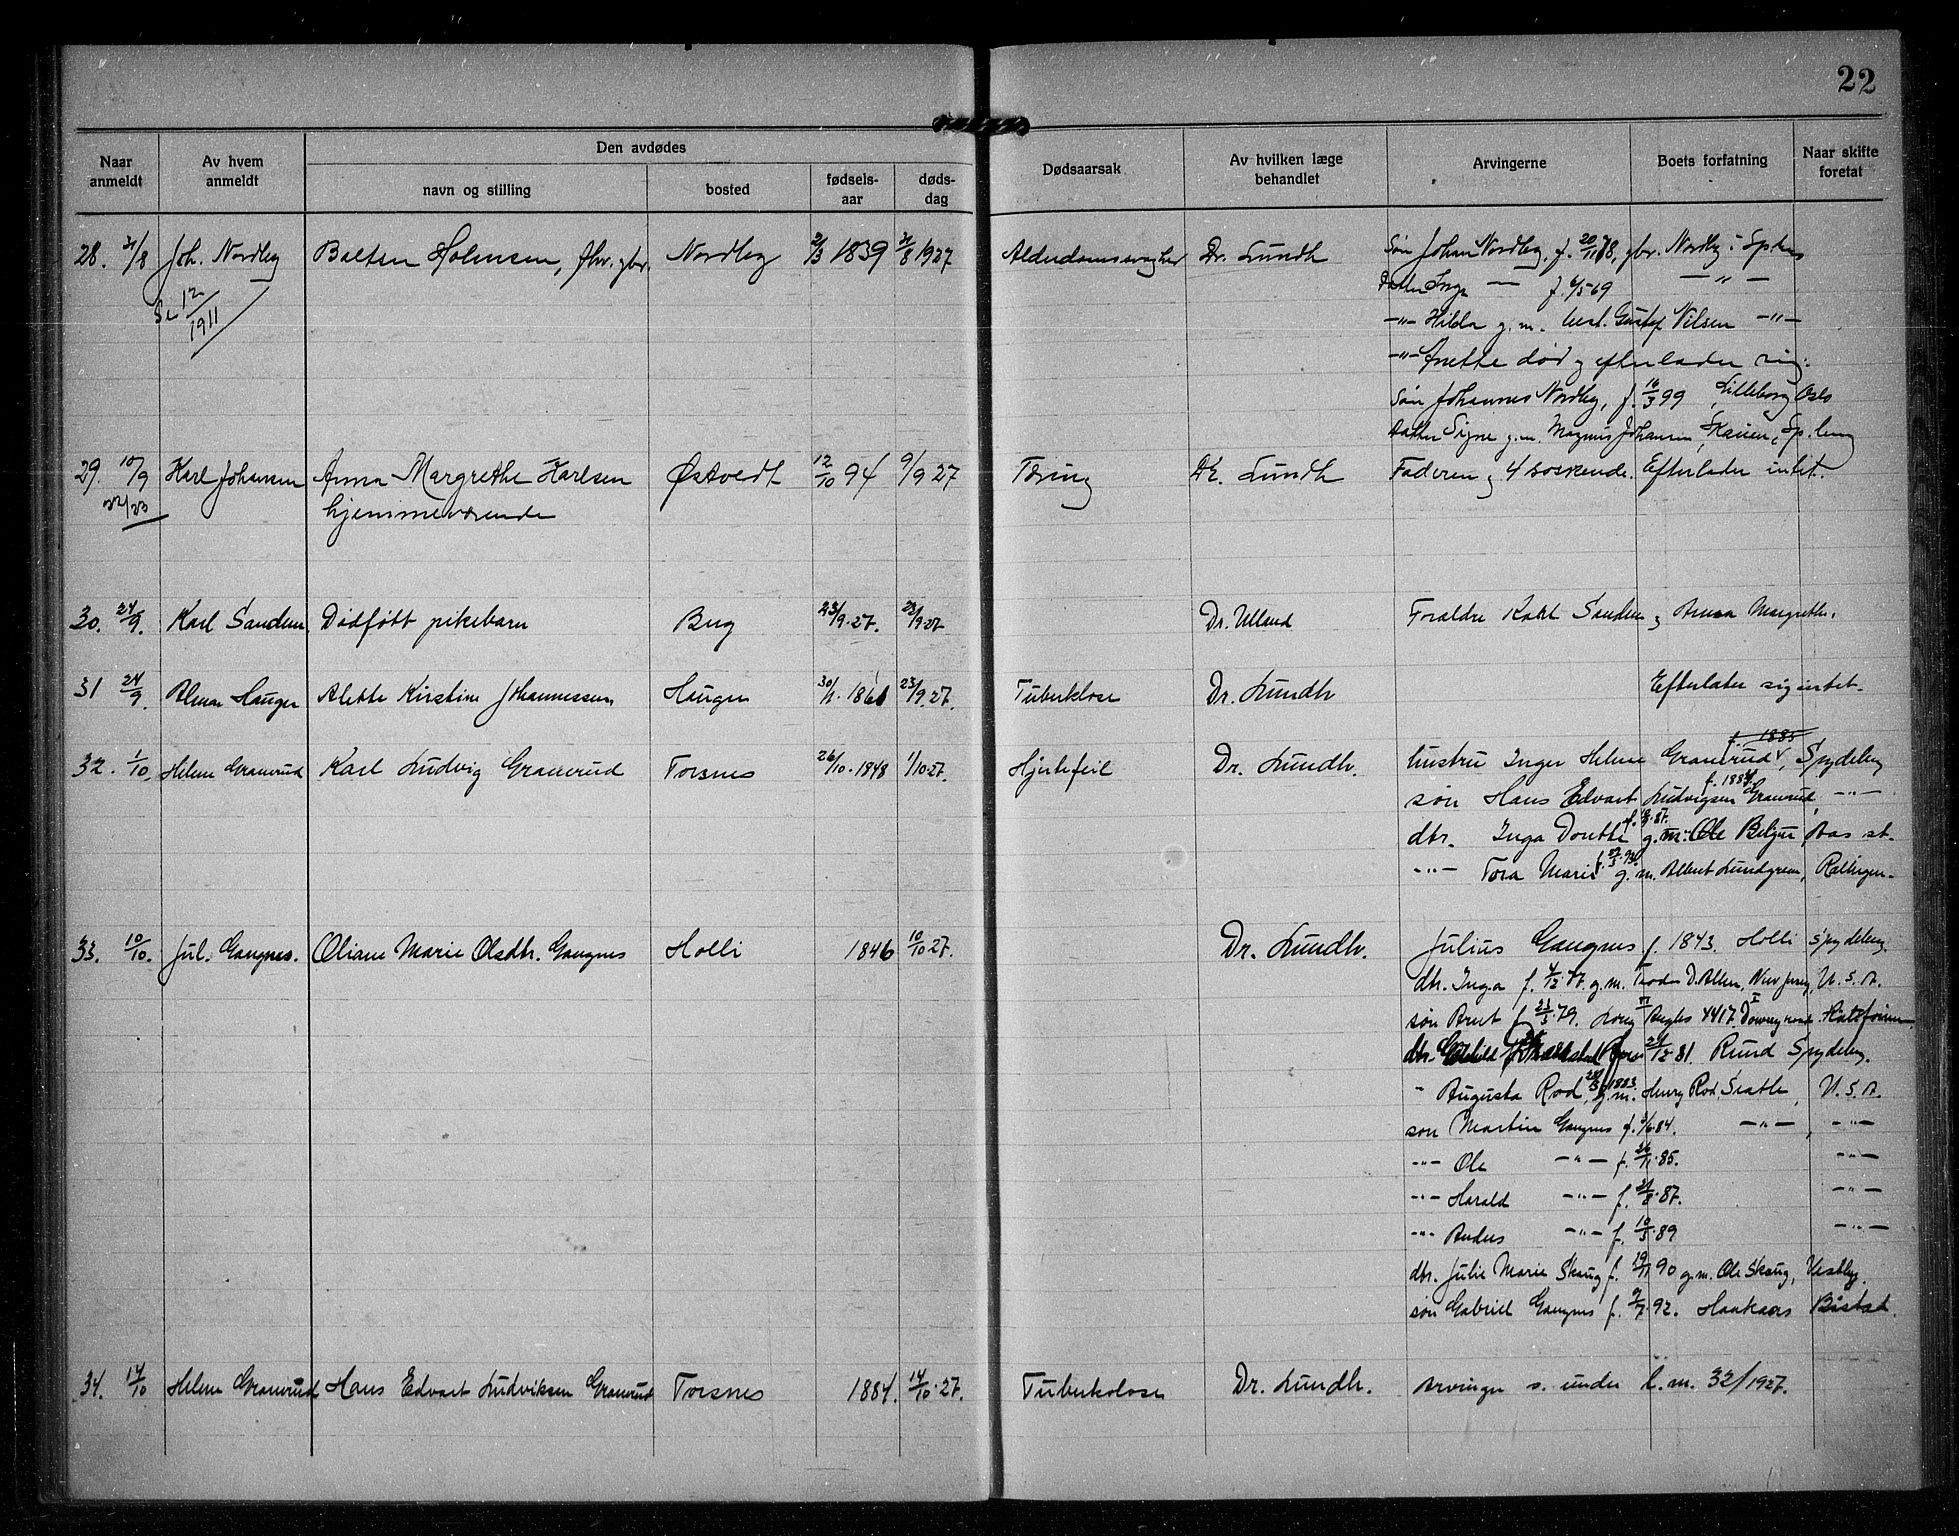 22
Naar anmeldt
Av hvem anmeldt
Den avdødes
navn og stilling
bosted
fødsels-aar
døds-dag
Dødsaarsak
Av hvilken læge behandlet
Arvingerne
Boets forfatning
Naar skifte foretat
28. 31/8 Joh. Nordby Boltsen Holmsen, fhv. gbr. Nordby 2/3 1839 31/8 1927 Alderdomssvaghet Dr. Lundh Søn Johan Nordby, f. 20/11 78, gbr. Nordby i Spberg
Datter Inga — f. 6/5 69 — " —
Se 12/1911
—"— Hilda g.m. Gustaf Nilsen —"—
—"— Anette død og efterlader sig:
Søn Johannes Nordby, f. 16/3 99 Lilleborg Oslo
Datter Signe g.m. Magnus Johansen, Skauen, Sp.berg
29. 10/9 Karl Johansen Anna Margrethe Karlsen Østvedt 12/10 94 9/9 27 Tæring Dr. Lundh Faderen og 4 søskende. Efterlader intet.
22/23 hjemmeværende
30. 24/9. Karl Sanden. Dødføtt pikebarn Bug 23/9.27. 23/9.27 Dr. Ulland Foræeldre Karl Sanden og Anna Margrethe.
31 24/9. Hauger Alette Kirstine Johannessen, Haugen 1861 23/9.27. Tuberklose Dr. Lundh Efterlater sig intet.
32. 1/10. Helene Granerud Karl Ludvig Granerud Torsnes 26/10.1848 1/10.27. Hjertefeil Dr. Lundh. hustru Inger Helene Granerud f. 1885, Spydeberg
søn Hans Edvart Ludvigsen Granerud f. 1884, —"—
dtr. Inga Dorthe g.m. Ole As st.
—"— Tora Marie g.m. Albert Lundgreen, Rælingen
33. 10/10. Jul. Gangnes. Oliane Marie Olsdtr. Gangnes Holli 1846 10/10.27. Dr. Lundh. Julius Gangnes f. 1843. Holli Spydeberg.
dtr. Inga f. 4/12.77. g.m. D. Allen, New Jersey, U.S.A.
søn f. 23/3 79. 4417 Downey road
dtr. 81. Ruud Spydeberg.
" Augusta Rod, 1883 g.m. Henry Rod, Seatle, U.S.A.
søn Martin Gangnes f. 84. —"—, —"—
—"— Ole —"— f. 26/11.85. —"—
—"— Harald —"— f. 21/8.87. —"—
—"— Anders —"— f. 10/3.89 —"—
dtr. Julie Marie Skaug f. 19/11 90 g.m. Ole Skaug, Vestby.
søn Gabriel Gangnes f. 9/7.92. Haakaas Båstad.
34. 14/10 Helene Granerud Hans Edvart Ludviksen Granerud Torsnes 1884. 14/10.27. Tuberkolose Dr. Lundh. Arvinger s. under l.m. 32/1927.